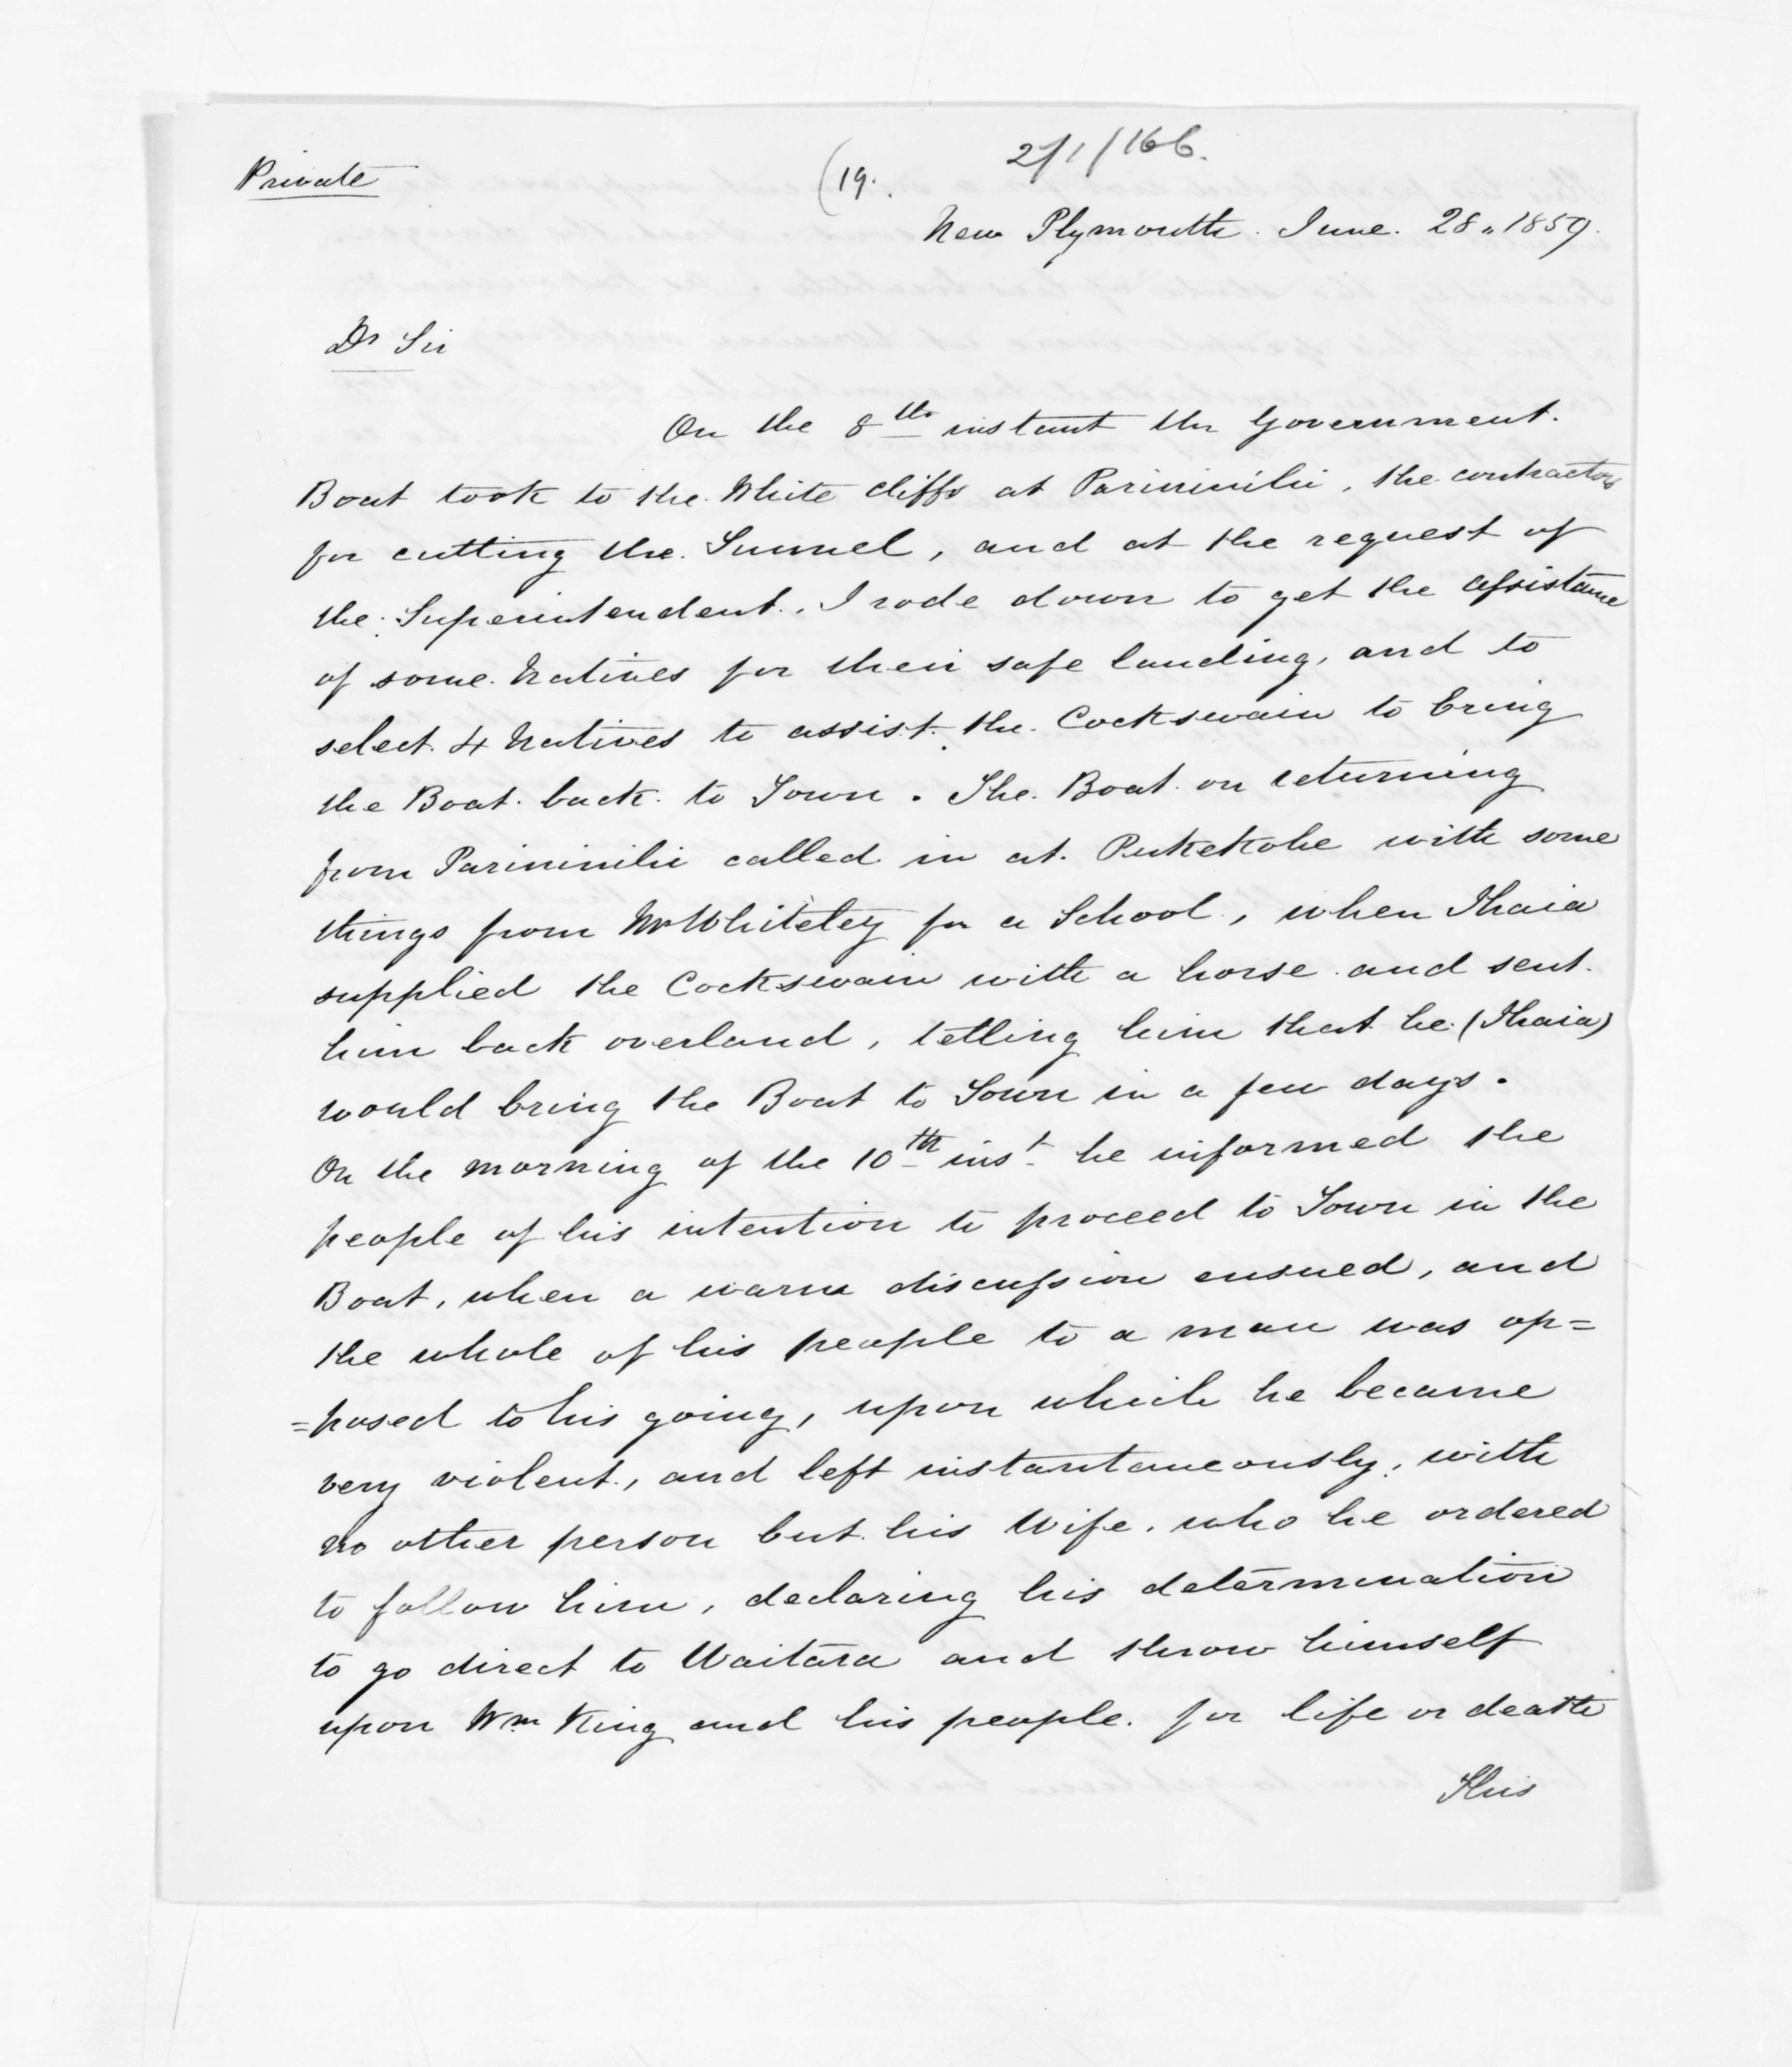 Private
(19.
27/1/166.
New Plymouth. June. 28„ 1859.
Dr Sir
On the 8th instant the Government.
Boat took to the White cliffs at Parininihi, the contractors
for cutting the Tunnel, and at the request of
the Superintendent, I rode down to get the assistance
of some Natives for their safe landing, and to
select 4 Natives to assist the Cockswain to bring
the Boat back to Town. The Boat on returning
from Parininihi called in at Pukekohe with some
things from Mr Whiteley for a School, when Ihaia
supplied the Cockswain with a horse and sent
him back overland, telling him that he (Ihaia)
would bring the Boat to Town in a few days.
On the morning of the 10th inst he informed the
people of his intention to proceed to Town in the
Boat, when a warm discussion ensued, and
the whole of his people to a man was op=
=posed to his going, upon which he became
very violent, and left instantaneously, with
no other person but his Wife, who he ordered
to follow him, declaring his determination
to go direct to Waitara and throw himself
upon Wm King and his people. for life or death
This